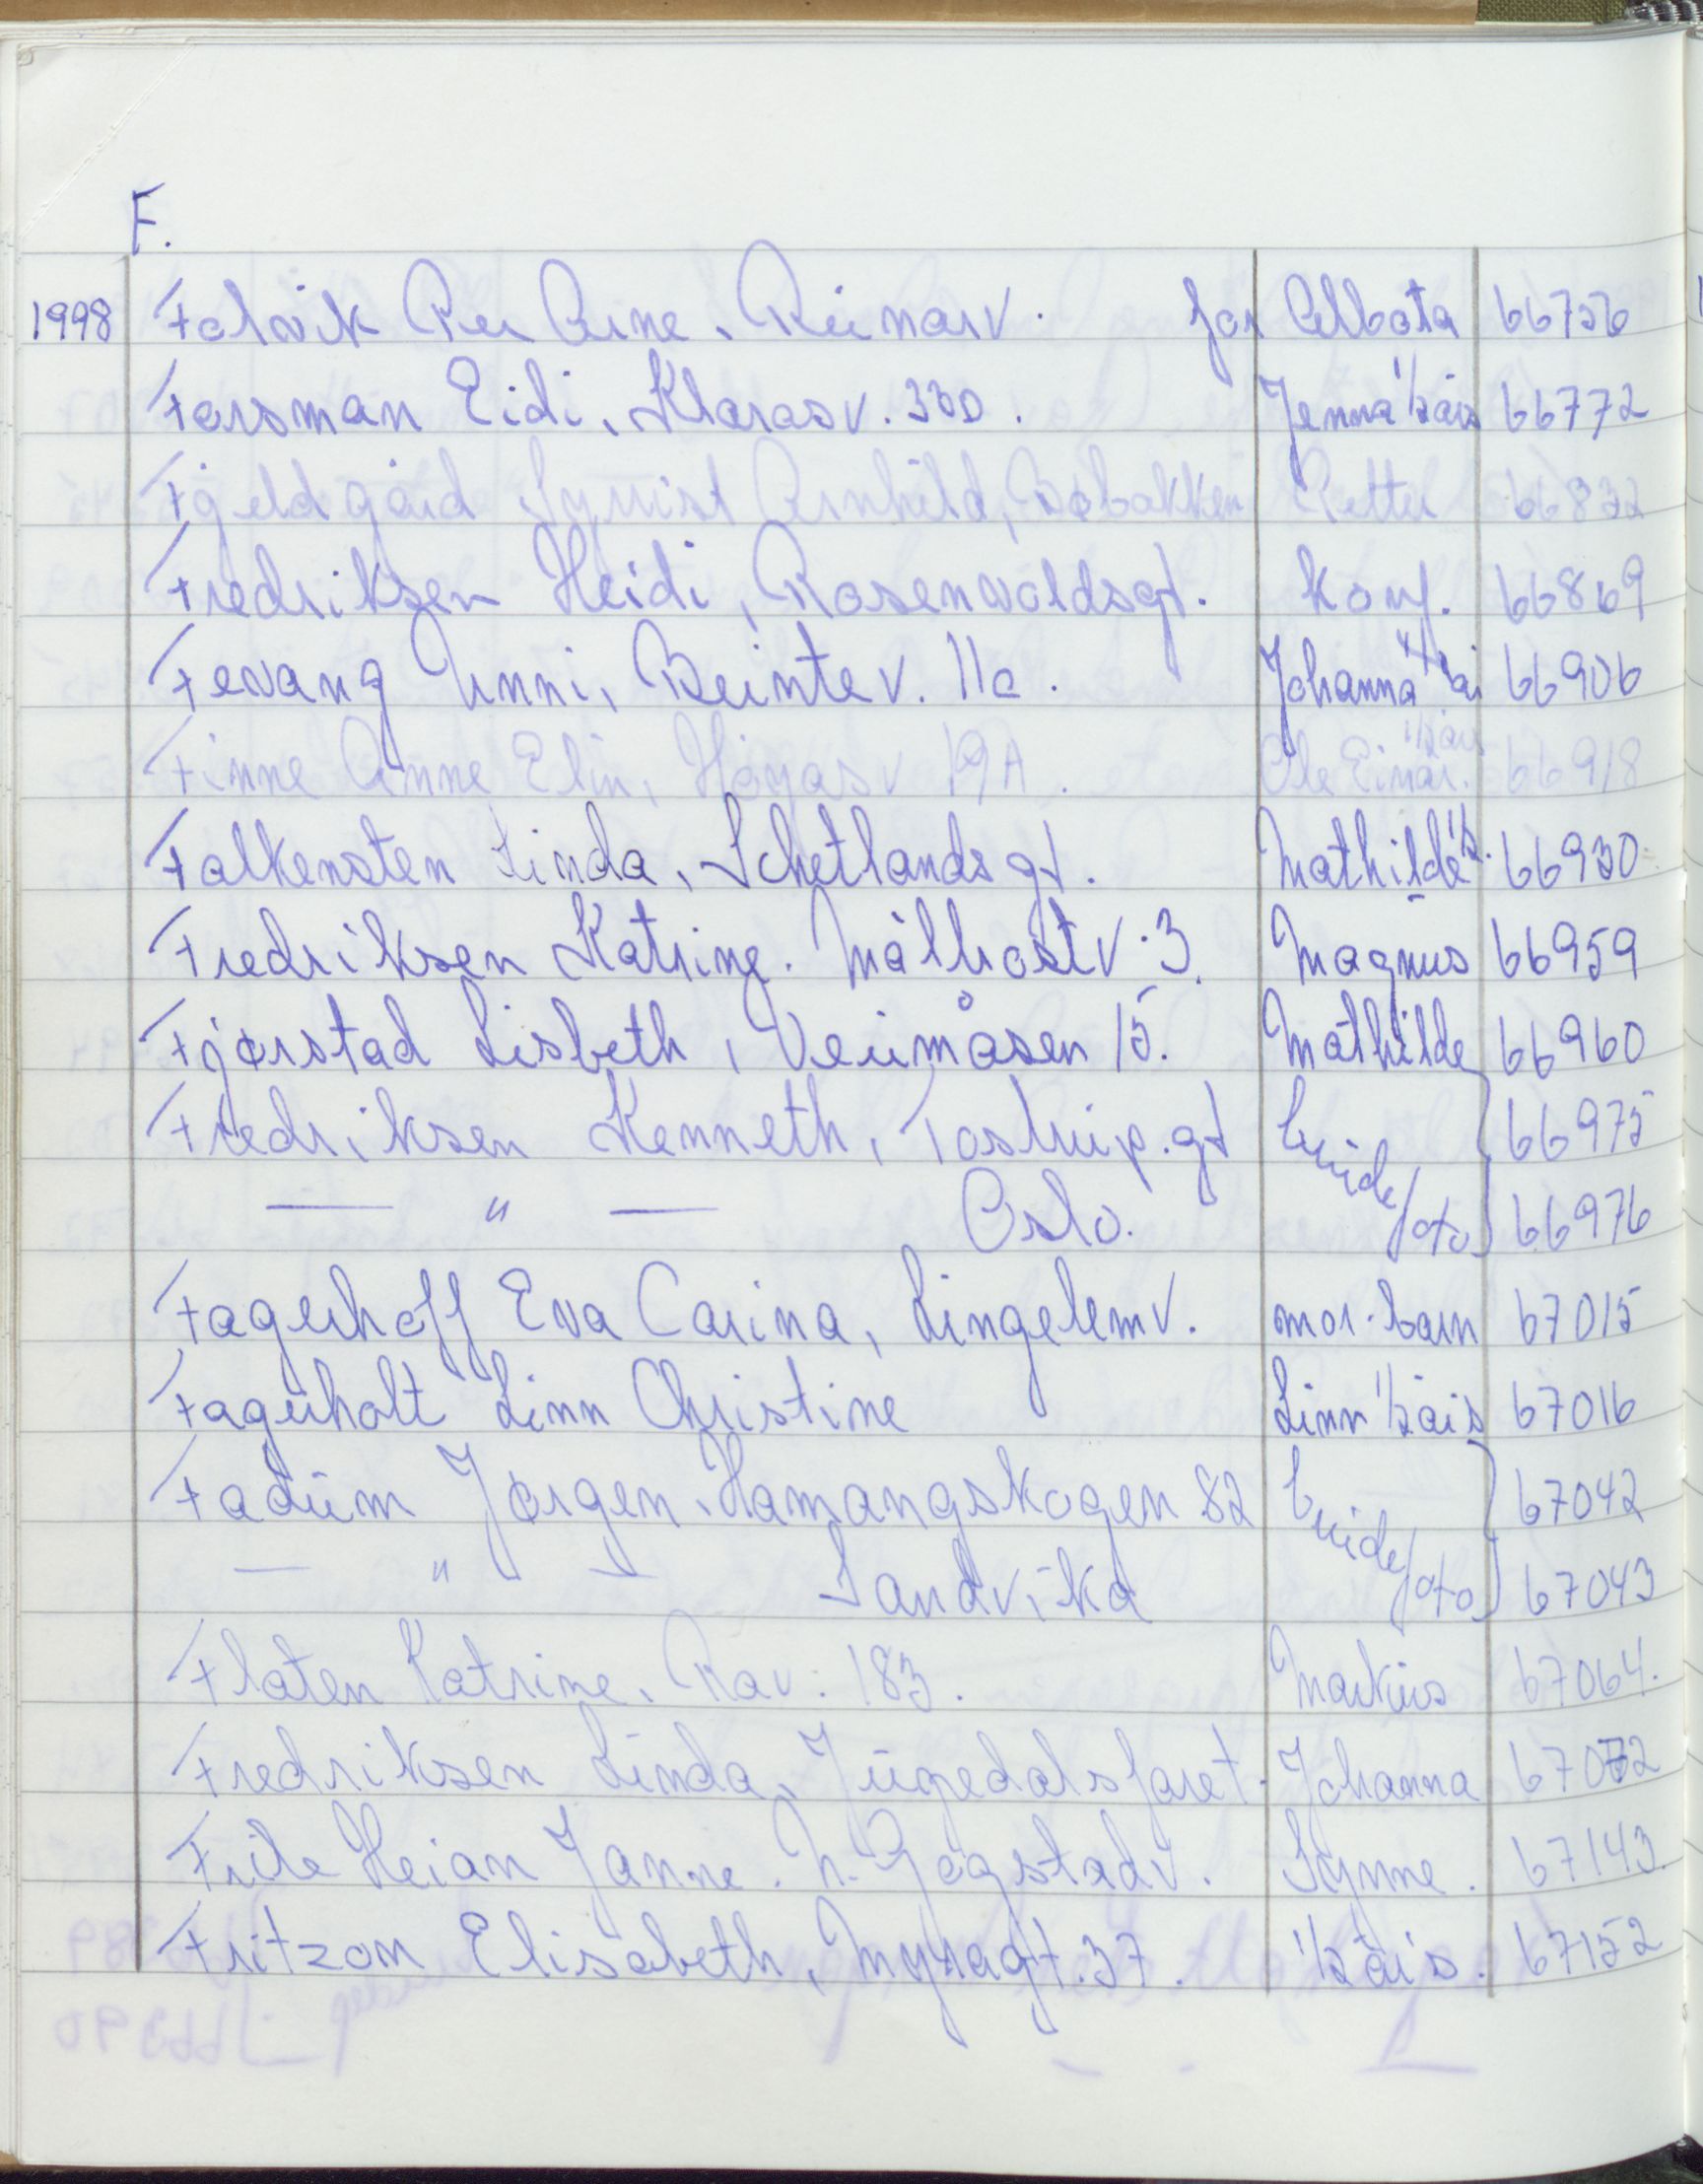 F.
1998 Folvik Per Arne, Reinarv. for Abbota 66756
Forsman Eidi, Klarasv. 33D. Jenna 1/2 års 66772
Fjeldgård Synnist Arnhild, Bøbakken Petter 66832
Fredriksen Heidi, Rosenvoldsgt. konf. 66869
Fevang Unni, Beintev. 11c. Johanna 66906
Finne Anne Elin, Høyasv 19A. Ole Einar. 1/2 års 66918
Falkensten Linda, Schetlandsgt. Mathilde 1/2. 66930
Fredriksen Katrine. Målrostv. 3. Magnus 66959
Fjørstad Lisbeth, Veumåsen 15. Mathilde 66960
Fredriksen Kenneth, Tostrup.gt brude 66975
— " — Oslo. foto 66976
Fagerhoff Eva Carina, Lingelemv. mor-barn 67015
Fagerholt Linn Christine Linn 1/2 års 67016
Fadum Jørgen, Hamangskogen 82 brude 67042
— " — Sandvika foto 67043
Flaten Katrine, Rav. 183. Markus 67064.
Fredriksen Linda, Jugedalsfaret. Johanna 67072
Frile Heian Janne. N. Gogstadv. Synne. 67143.
Fritzon Elisabeth, Myragt. 37. 1/2 års. 67152